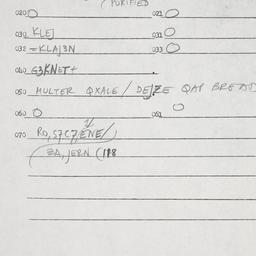 (PURIFIED
020 O 021 O
030 KLEJ 031 O
032 = KLAJ3N 033 O
040 G3KNET+
050 MULTER QXALE / DEJZE QAP BREAD
060 O 061 O
070 RD, S7C7/ENE/
ZA, JERN (118